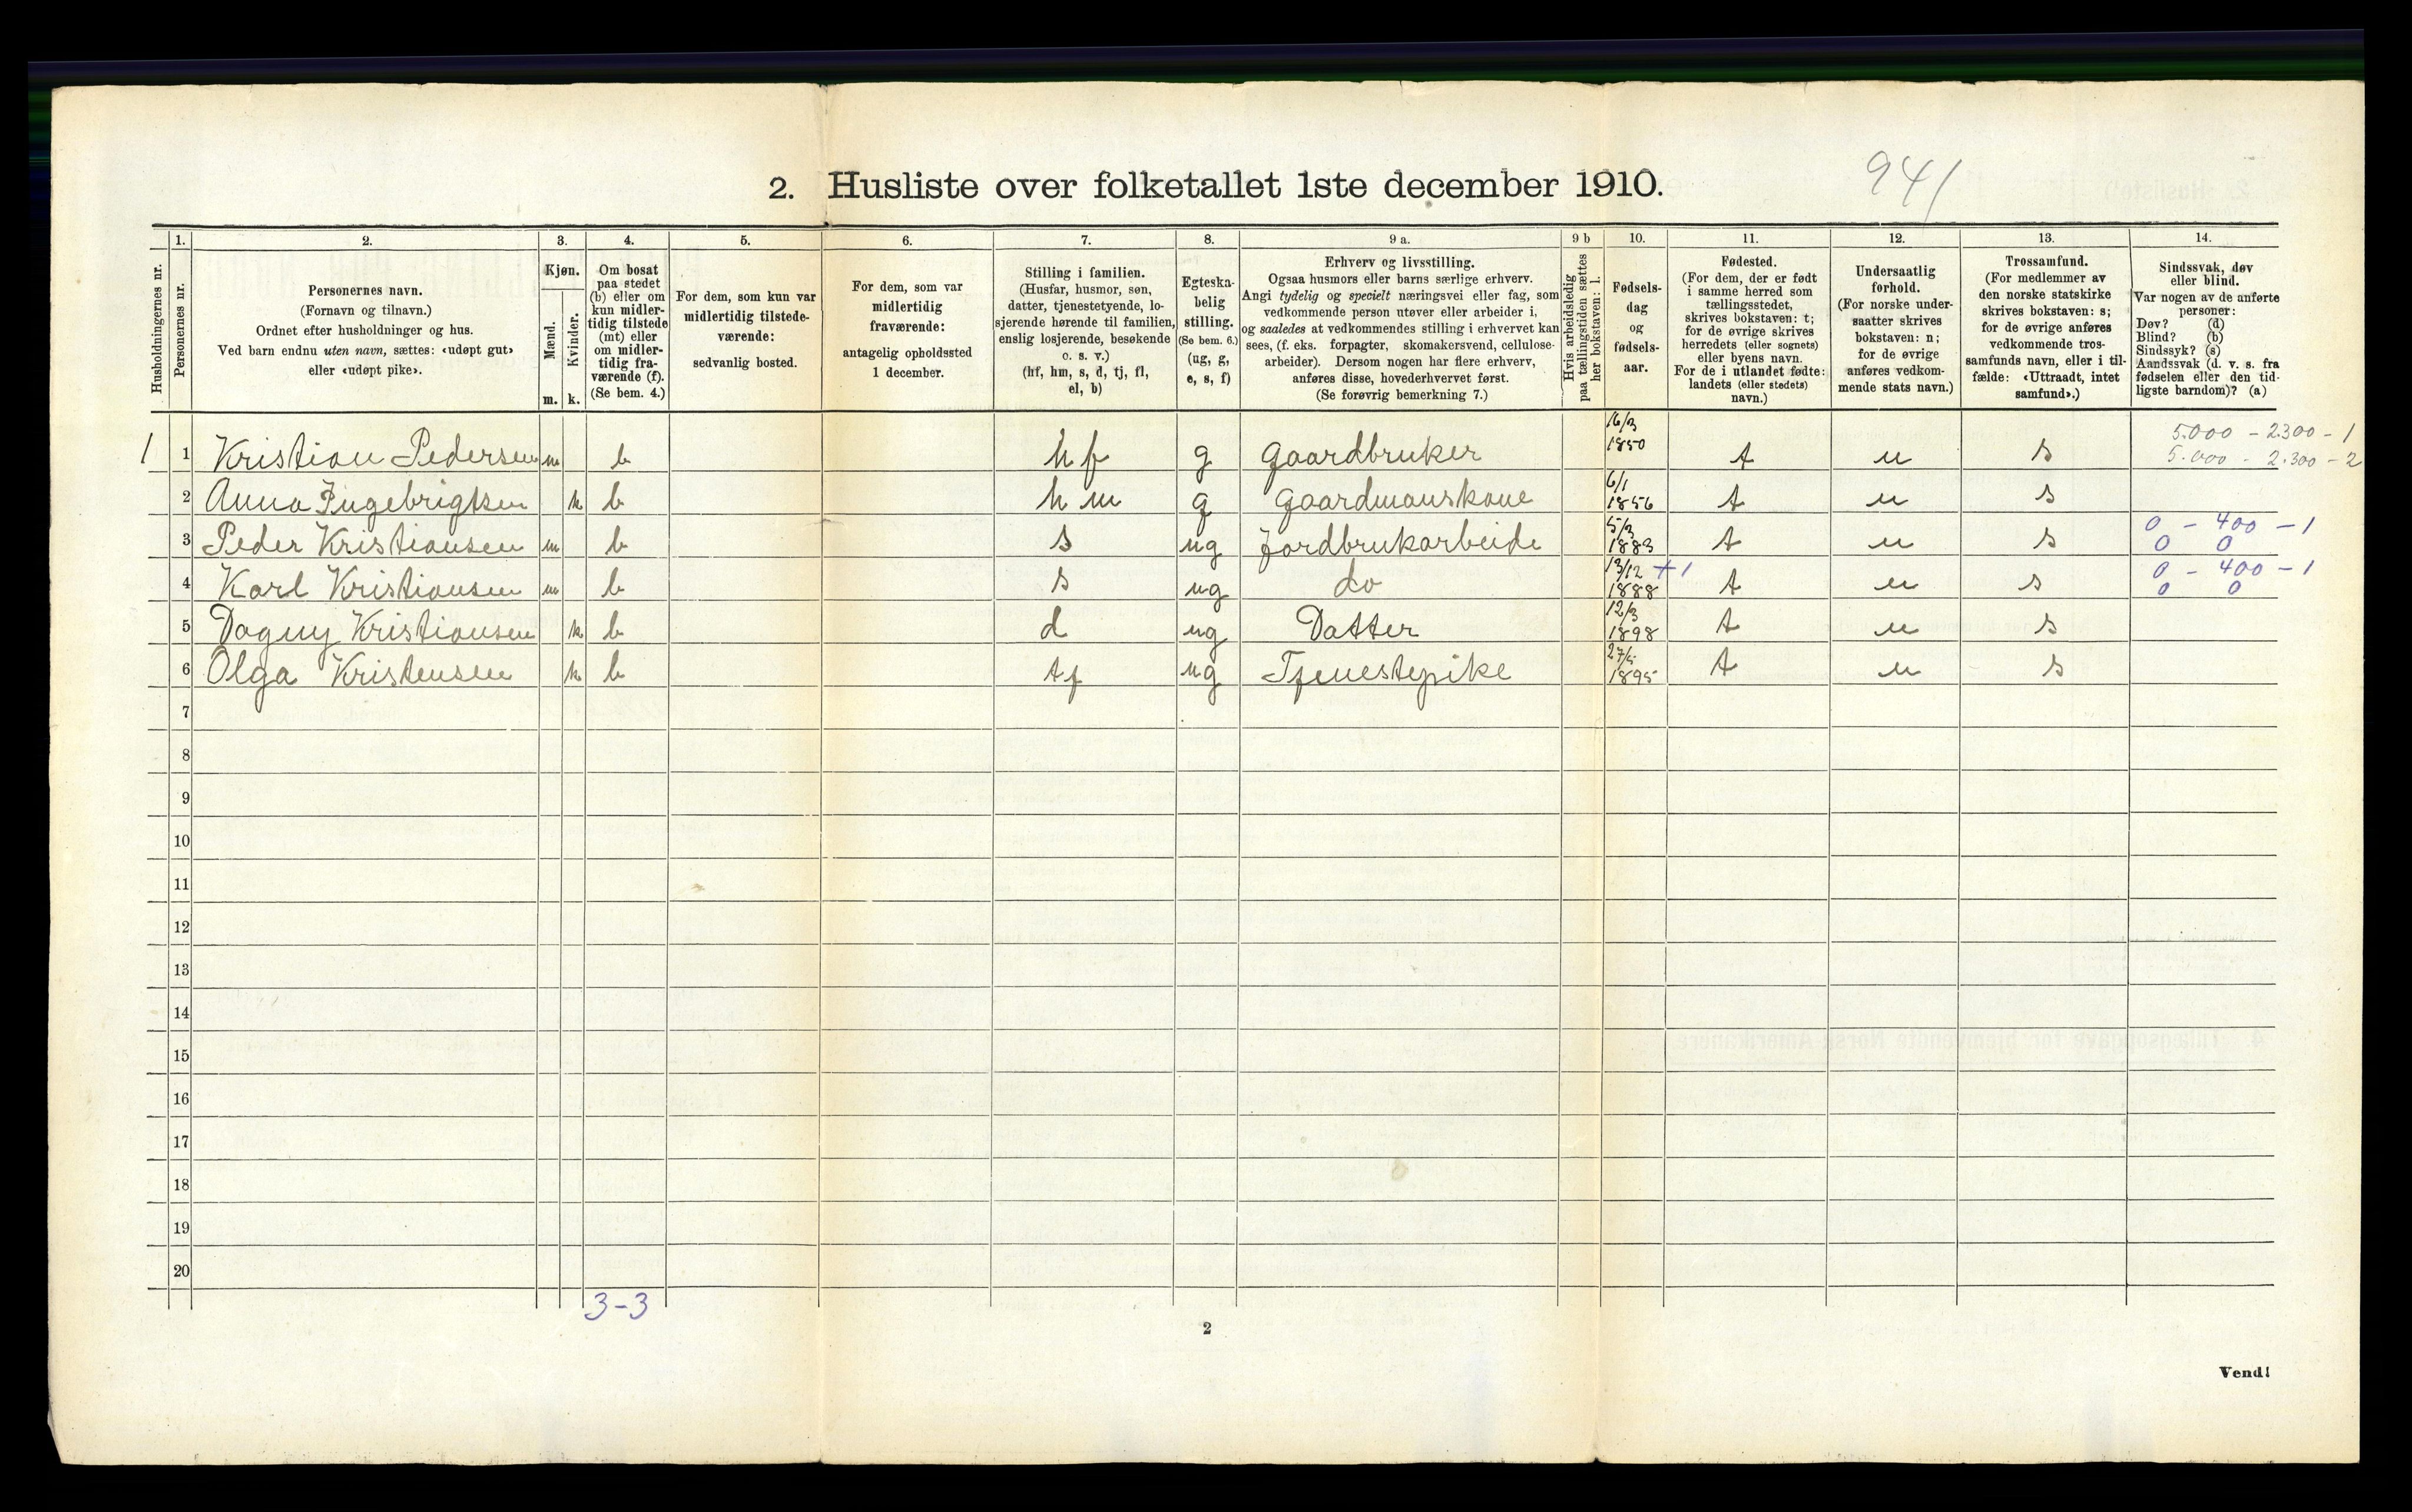 2. Husliste over folketallet 1ste december 1910.
941
Husholdningernes nr.
1.
Personernes nr.
2.
Personernes navn.
(Fornavn og tilnavn.)
Ordnet efter husholdninger og hus.
Ved barn endnu uten navn, sættes: «udøpt gut»
eller «udøpt pike».
3.
Kjøn.
Mænd.
m.
Kvinder.
k.
4.
Om bosat
paa stedet
(b) eller om
kun midler-
tidig tilstede
(mt) eller
om midler-
tidig fra-
værende (f).
(Se bem. 4.)
5.
For dem, som kun var
midlertidig tilstede-
værende:
sedvanlig bosted.
6.
For dem, som var
midlertidig
fraværende:
antagelig opholdssted
1 december.
7.
Stilling i familien.
(Husfar, husmor, søn,
datter, tjenestetyende, lo-
sjerende hørende til familien,
enslig losjerende, besøkende
o. s. v.)
(hf, hm, s, d, tj, fl,
el, b)
8.
Egteska-
belig
stilling.
(Se bem. 6.)
(ug, g,
e, s, f)
9 a.
Erhverv og livsstilling.
Ogsaa husmors eller barns særlige erhverv.
Angi tydelig og specielt næringsvei eller fag, som
vedkommende person utøver eller arbeider i,
og saaledes at vedkommendes stilling i erhvervet kan
sees, (f. eks. forpagter, skomakersvend, cellulose-
arbeider). Dersom nogen har flere erhverv,
anføres disse, hovederhvervet først.
(Se forøvrig bemerkning 7.)
9 b
Hvis arbeidsledig
paa tællingstiden sættes
her bokstaven: l.
10.
Fødsels-
dag
og
fødsels-
aar.
11.
Fødested.
(For dem, der er født
i samme herred som
tællingsstedet,
skrives bokstaven: t;
for de øvrige skrives
herredets (eller sognets)
eller byens navn.
For de i utlandet fødte:
landets (eller stedets)
navn.)
12.
Undersaatlig
forhold.
(For norske under-
saatter skrives
bokstaven: n;
for de øvrige
anføres vedkom-
mende stats navn.)
13.
Trossamfund.
(For medlemmer av
den norske statskirke
skrives bokstaven: s;
for de øvrige anføres
vedkommende tros-
samfunds navn, eller i til-
fælde: «Uttraadt, intet
samfund».)
14.
Sindssvak, døv
eller blind.
Var nogen av de anførte
personer:
Døv? (d)
Blind? (b)
Sindssyk? (s)
Aandssvak (d. v. s. fra
fødselen eller den tid-
ligste barndom)? (a)
1 1 Kristian Pedersen m b hf g gaardbruker 16/3 1850 t n s 5.000 - 2300 - 1
5.000 - 2.300 - 2
2 Anna Ingebrigtsen k b hm g gaardmanskone 6/1 1856 t n s
3 Peder Kristiansen m b s ug Jordbrukarbeide 5/3 1883 t n s 0 - 400 - 1
0 0
4 Karl Kristiansen m b s ug do 13/12 +1 1888 t n s 0 - 400 - 1
0 0
5 Dagny Kristiansen k b d ug Datter 12/3 1898 t n s
6 Olga Kristensen k b tj ug Tjenestepike 1895 t n s
7
8
9
10
11
12
13
14
15
16
17
18
19
20
3-3
2
Vend!